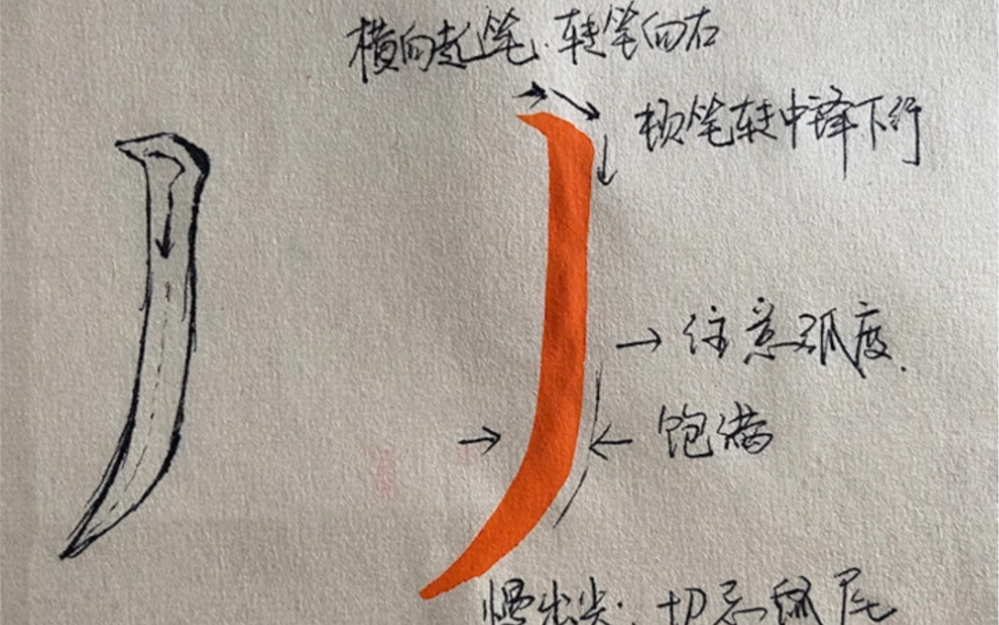 横向起笔.转笔向右
顿笔转中锋下行
→注意弧度.
饱满
慢出尖.切忌鼠尾